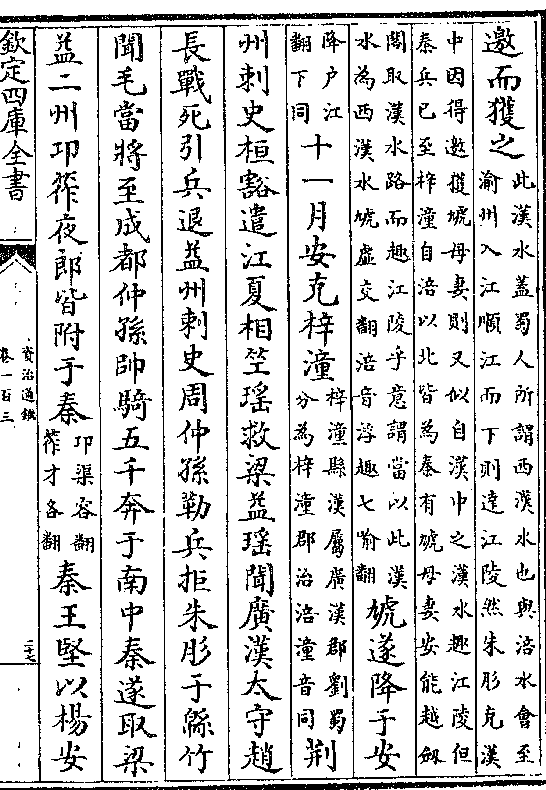 邀而獲之此漢水蓋蜀人所謂西漢水也與涪水會至渝州入江順江而下則達江陵然朱肜克漢
中因得邀獲虓母妻則又似自漢中之漢水趣江陵但秦兵已至梓潼自涪以北皆為秦有虓母妻安能越劔
閣取漢水路而趣江陵乎意謂當以此漢水為西漢水虓虛交翻涪音浮趣七喻翻虓遂降于安
降户江翻下同十一月安克梓潼梓潼縣漢屬廣漢郡劉蜀分為梓潼郡治涪潼音同荆
州刺史桓豁遣江夏相竺瑶救梁益瑶聞廣漢太守趙
長戰死引兵退益州刺史周仲孫勒兵拒朱肜于緜竹
聞毛當將至成都仲孫帥騎五千奔于南中秦遂取梁
益二州卭筰夜郎皆附于秦卭渠容翻筰才各翻秦王堅以楊安
欽定四庫全書
資治通鑑
卷一百三
二十七